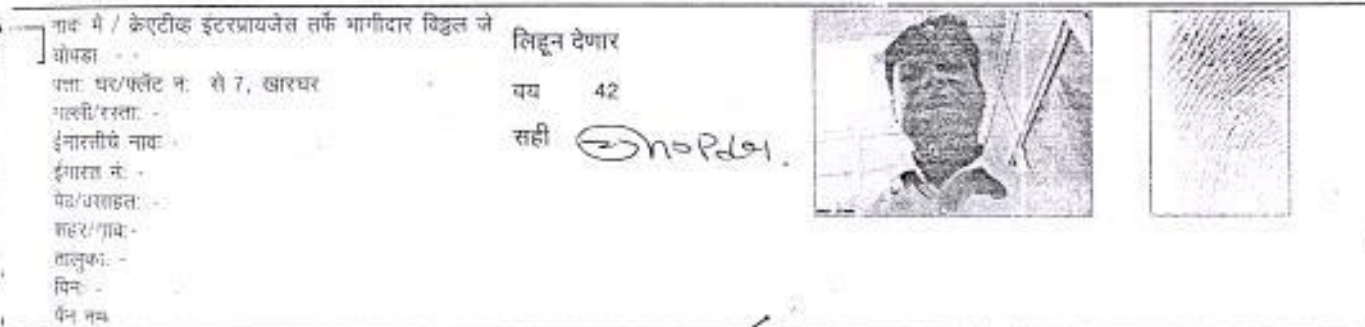 नाव: मे / क्रेएटीव्ह इंटरप्रायजेस तर्फे भागीदार विठ्ठल जे
चोपडा - -
पत्ता: घर/फ्लॅट नं: से 7, खारघर -
गल्ली/रस्ता: -
ईमारतीचे नाव: -
ईमारत नं: -
पेठ/वसाहत: -
शहर/गाव: -
तालुका: -
पिन: -
पॅन नम्
लिहून देणार
वय 42
सही